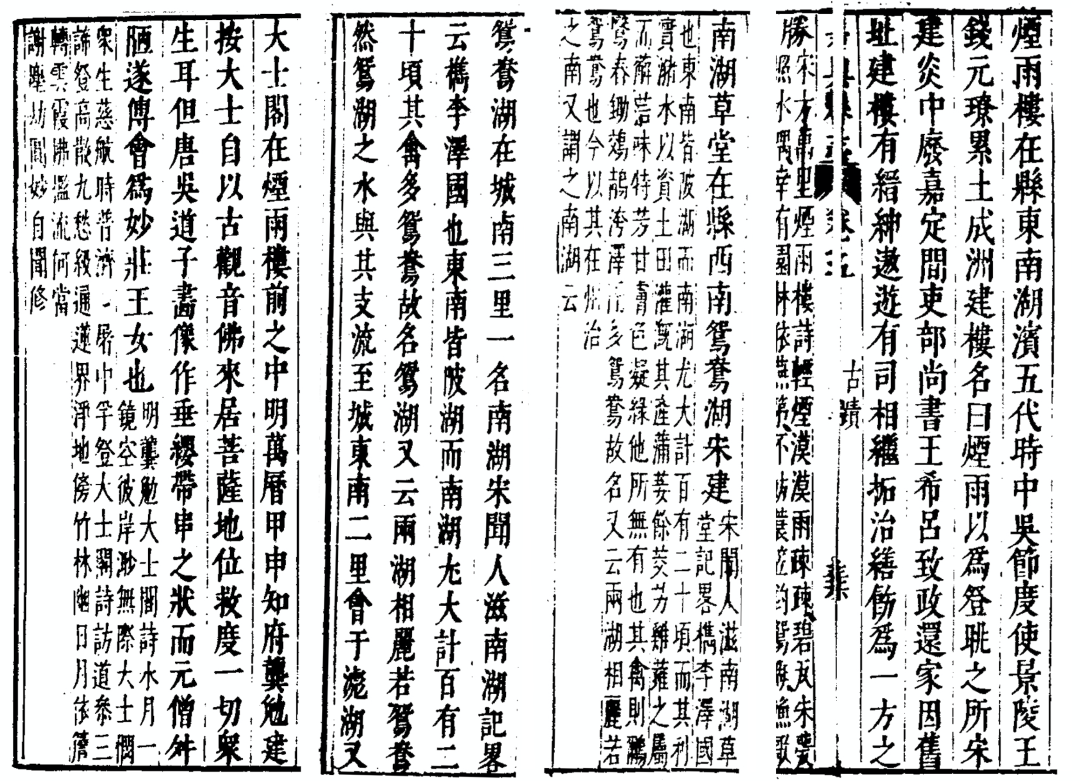 煙雨樓在縣東南湖濱五代時中吳節度使景陵王
錢元璙累土成洲建樓名曰煙雨以爲登眺之所宋
建炎中廢嘉定間吏部尚書王希呂致政還家因舊
址建樓有縉紳遨遊有司相繼拓治繕飭爲一方之
古蹟
勝宋方萬里煙雨樓詩輕煙漠漠雨疎疎碧瓦朱甍
照水隅幸有園林依燕第不妨蓑笠釣鴛
南湖草堂在縣西南鴛鴦湖宋建宋聞人滋南湖草
堂記畧檇李澤國
也東南皆陂湖而南湖尤大計百有二十頃而其利
實瀦水以資土田灌溉其產蒲菱餘芡芀雞蕹之屬
而蓴菭味特芳甘膚色凝綠他所無有也其禽則鸕
春鋤鵁鶄洿澤而多鴛鴦故名又云兩湖相麗若
鴛鴦也今以其在州治
之南又謂之南湖云
鴛鴦湖在城南三里一名南湖宋聞人滋南湖記畧
云檇李澤國也東南皆陂湖而南湖尤大計百有二
十頃其禽多鴛鴦故名鴛湖又云兩湖相麗若鴛鴦
然鴛湖之水與其支流至城東南二里會于滮湖又
大士閣在煙雨樓前之中明萬曆甲申知府龔勉建
按大士自以古觀音佛來居菩薩地位救度一切衆
生耳但唐吳道子畫像作垂纓帶串之狀而元僧舛
陋遂傅會爲妙莊王女也明龔勉大士閣詩水月一
鏡空彼岸渺無際大士憫
衆生慈航時普濟一屠中孚登大士閣詩訪道叅三
諦登高散九愁級遍蓮界淨地傍竹林幽日月依簷
轉雲霞拂檻流何當
謝塵劫聞妙自聞修